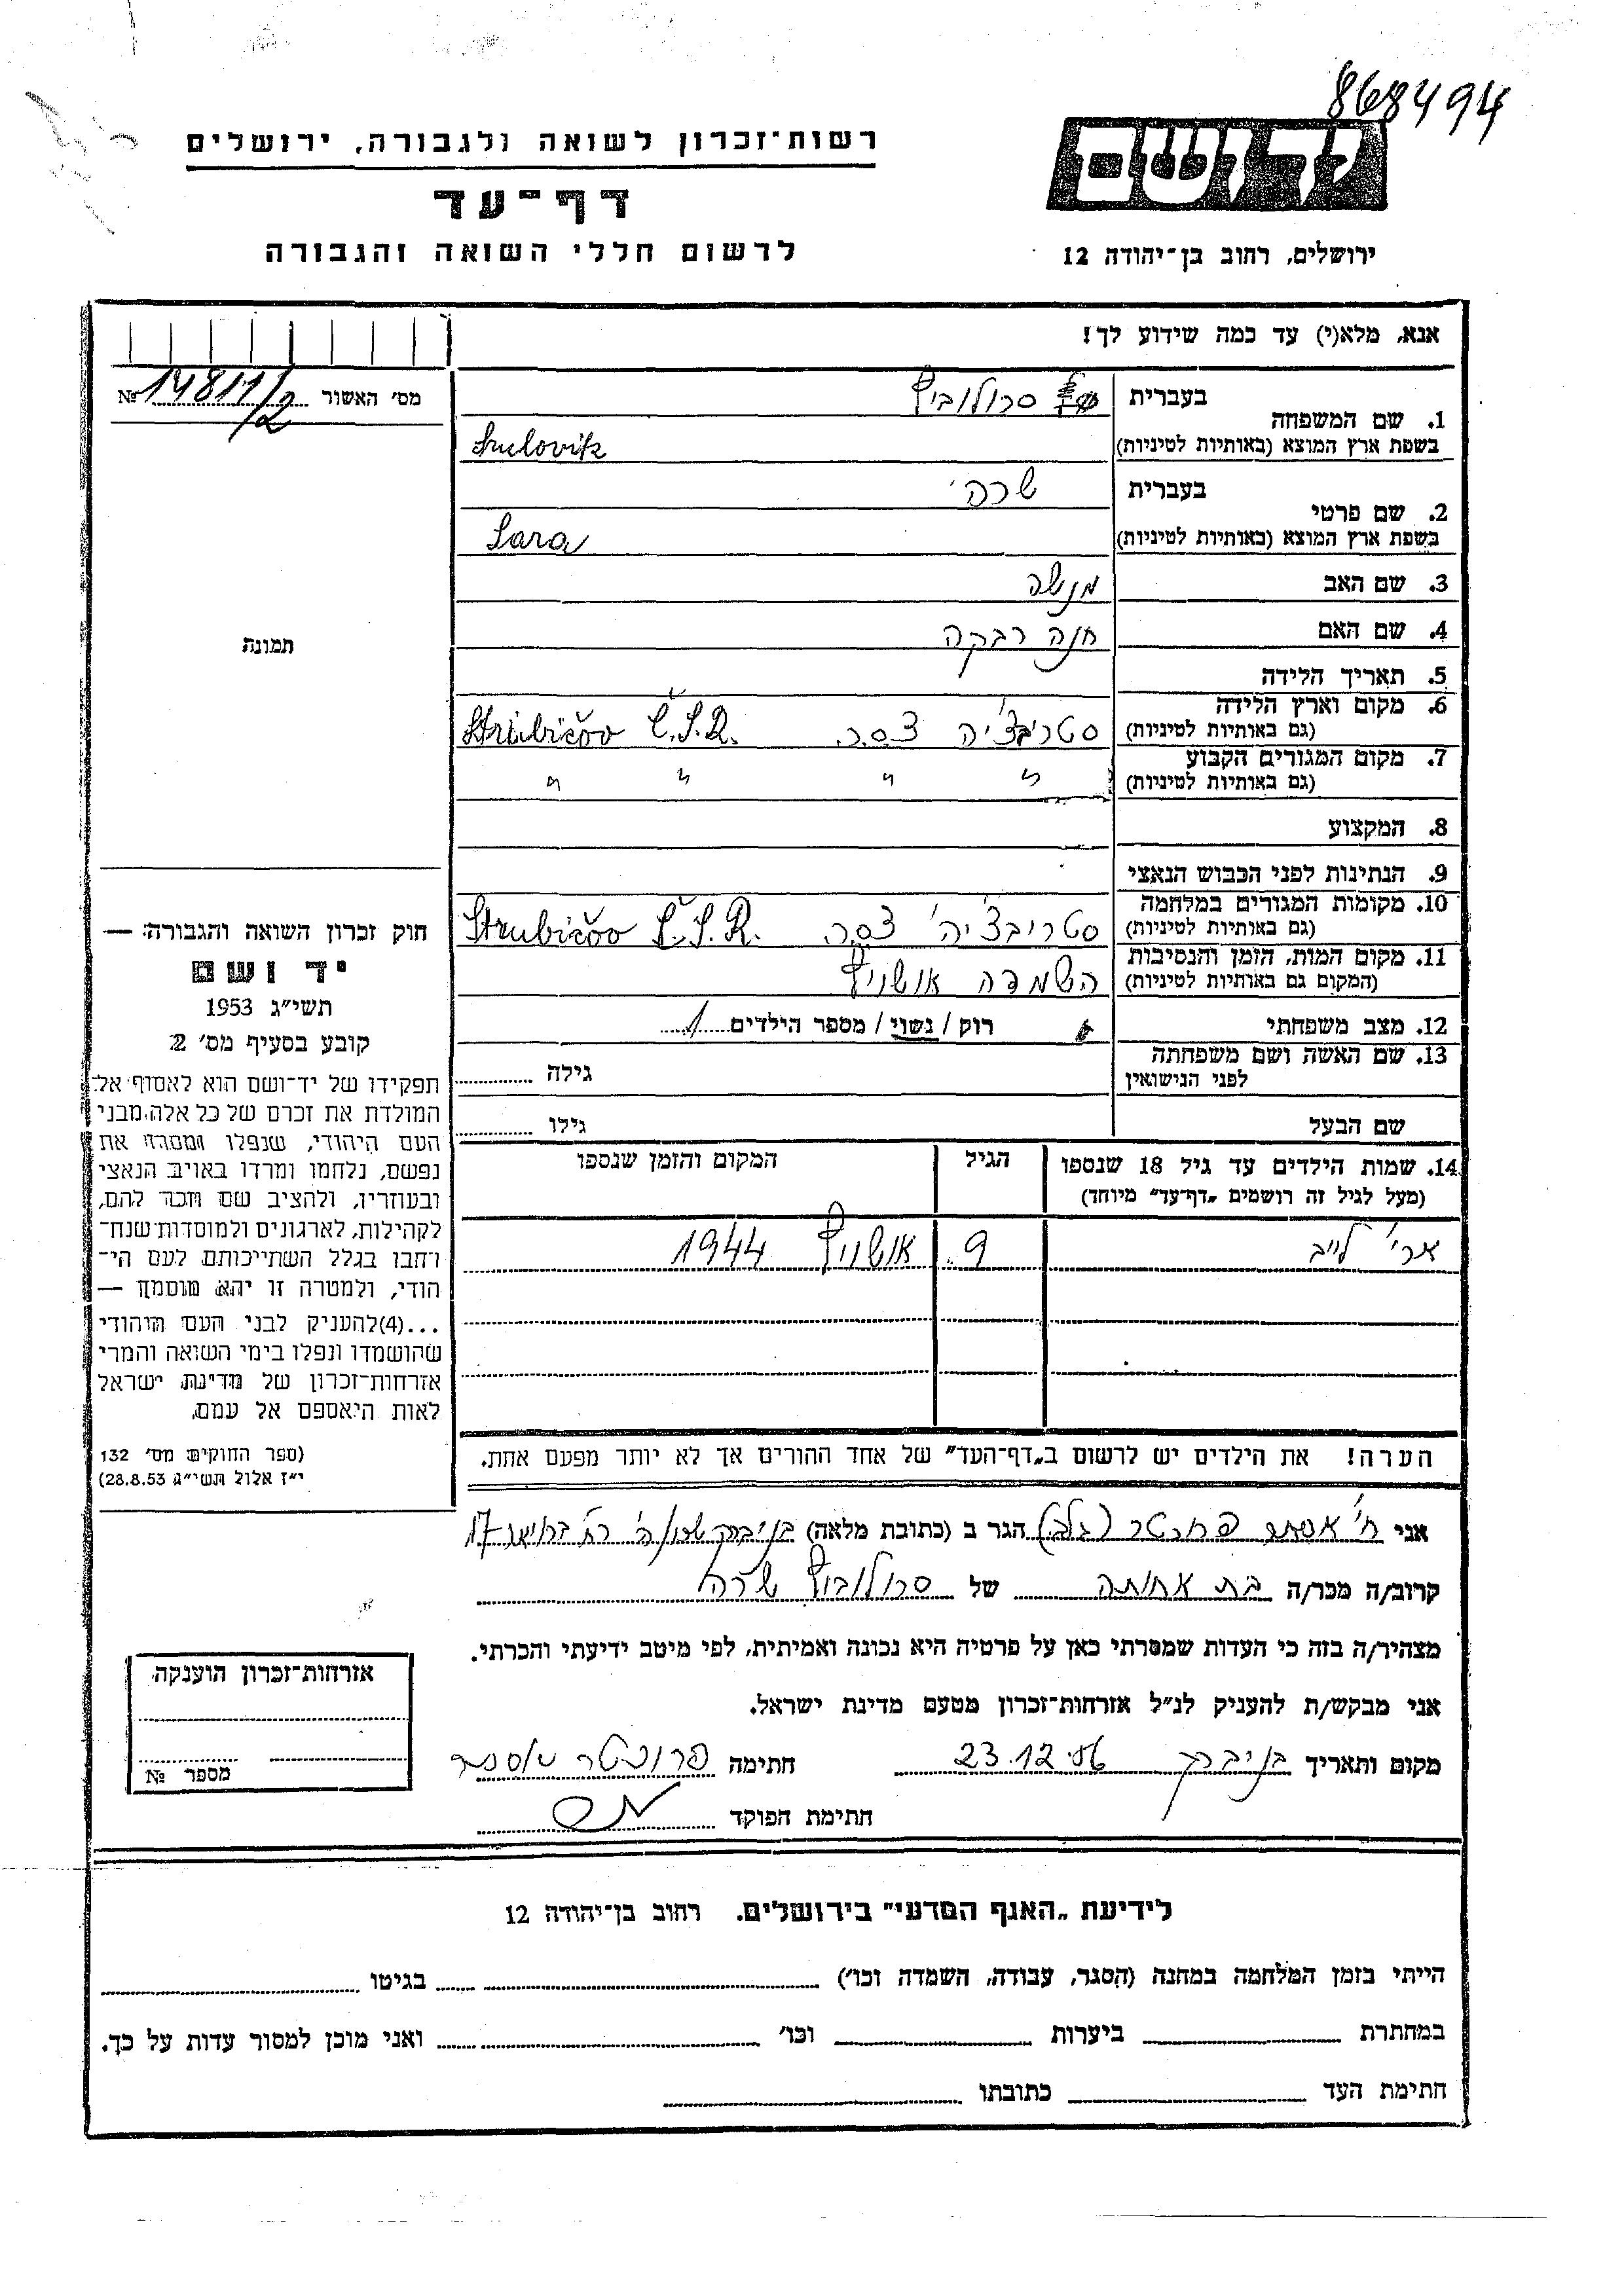 868494
ידושם
ירושלים, רחוב בן־יהודה 12
רשות־זכרון לשואה ולגבורה, ירושלים
דף־עד
לרשום חללי השואה והגבורה
אנא, מלא(י) עד כמה שידוע לך!
מס׳ האשור № 14811/2
1. שם המשפחה
בעברית סרולוביץ
בשפת ארץ המוצא (באותיות לטיניות) Srulovik
2. שם פרטי
בעברית שרה
בשפת ארץ המוצא (באותיות לטיניות) Sara
3. שם האב מנשה
4. שם האם חנה רבקה
5. תאריך הלידה
6. מקום וארץ הלידה
(גם באותיות לטיניות) סטריבציה צ.ס.ר. Strubičov Č.S.R.
7. מקום המגורים הקבוע
(גם באותיות לטיניות) " " " "
8. המקצוע
9. הנתינות לפני הכבוש הנאצי
10. מקומות המגורים במלחמה
(גם באותיות לטיניות) סטריבציה צ.ס.ר. Strubičov Č.S.R.
11. מקום המות, הזמן והנסיבות
(המקום גם באותיות לטיניות) השמדה אושויץ
12. מצב משפחתי רוק / נשוי / מספר הילדים 1
13. שם האשה ושם משפחתה
לפני הנישואין גילה
שם הבעל גילו
14. שמות הילדים עד גיל 18 שנספו הגיל המקום והזמן שנספו
(מעל לגיל זה רושמים „דף־עד” מיוחד)
ארי לייב 9 אושויץ 1944
תמונה
חוק זכרון השואה והגבורה —
יד ושם
תשי״ג 1953
קובע בסעיף מס׳ 2
תפקידו של יד־ושם הוא לאסוף אל
המולדת את זכרם של כל אלה מבני
העם היהודי, שנפלו ומסרו את
נפשם, נלחמו ומרדו באויב הנאצי
ובעוזריו, ולהציב שם וזכר להם,
לקהילות, לארגונים ולמוסדות שנח־
רבו בגלל השתייכותם לעם הי־
הודי, ולמטרה זו יהא מוסמך —
...(4)להעניק לבני העם היהודי
שהושמדו ונפלו בימי השואה והמרי
אזרחות־זכרון של מדינת ישראל
לאות היאספם אל עמם.
(ספר החוקים מס׳ 132
י״ז אלול תשי״ג 28.8.53)
הערה! את הילדים יש לרשום ב„דף־העד” של אחד ההורים אך לא יותר מפעם אחת.
אני אסתר הגר ב (כתובת מלאה) בני ברק 17
קרוב/ה מכר/ה בת אחותה של סרולוביץ שרה
מצהיר/ה בזה כי העדות שמסרתי כאן על פרטיה היא נכונה ואמיתית, לפי מיטב ידיעתי והכרתי.
אני מבקש/ת להעניק לנ״ל אזרחות־זכרון מטעם מדינת ישראל.
מקום ותאריך בני ברק 23.12.56 חתימה אסתר
חתימת הפוקד
אזרחות־זכרון הוענקה
מספר №
לידיעת „האגף המדעי” בירושלים. רחוב בן־יהודה 12
הייתי בזמן המלחמה במחנה (הסגר, עבודה, השמדה וכו׳) בגיטו
במחתרת ביערות וכו׳ ואני מוכן למסור עדות על כך.
חתימת העד כתובתו